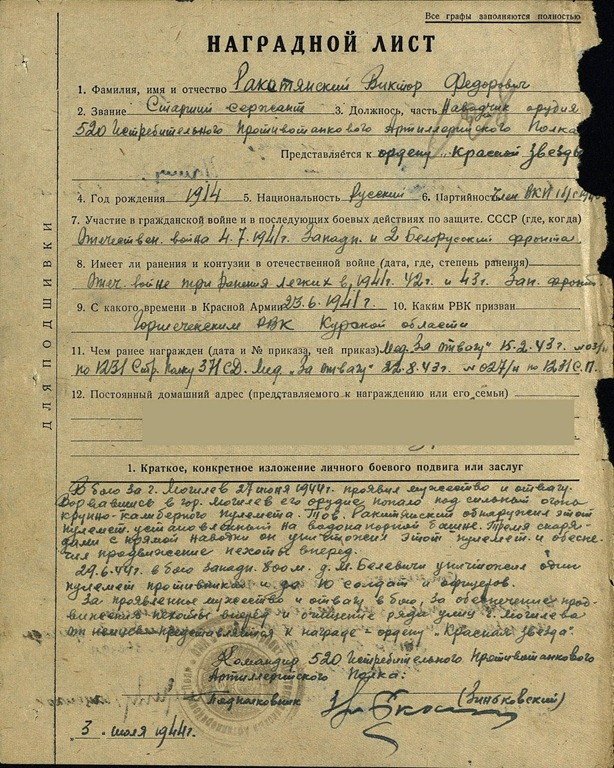 Все графы заполняются полностью
НАГРАДНОЙ ЛИСТ
1. Фамилия, имя и отчество Ракитянский Виктор Федорович
2. Звание Старший сержант 3. Должнось, часть Наводчик орудия
520 Истребительного Противотанкового Артиллерийского Полка
Представляется к ордену „Красной Звезды
4. Год рождения 1914 5. Национальность Русский 6. Партийность Член ВКП(б) с
7. Участие в гражданской войне и в последующих боевых действиях по защите. СССР (где, когда)
Отечествен. война 4.7.1941г. Западн. и 2 Белорусский фронта
8. Имеет ли ранения и контузии в отечественной войне (дата, где, степень ранения)
Отеч. войне три ранения легких в 1941г. 42г. и 43г. Зап. фронт
9. С какого времени в Красной Армии 23.6.1941г. 10. Каким РВК призван
Горшеченским РВК Курской области
11. Чем ранее награжден (дата и № приказа, чей приказ) Мед. „За отвагу" 15.2.43г.
по 1231 Стр. Полку 371 СД. Мед. „За отвагу" 22.8.43г. №027/н по 1231 С.П.
12. Постоянный домашний адрес (представляемого к награждению или его семьи)
1. Краткое, конкретное изложение личного боевого подвига или заслуг
В бою за г. Могилев 27 июня 1944г. проявил мужество и отвагу.
Ворвавшись в гор. Могилев его орудие попало под сильный огонь
крупно-калиберного пулемета. Тов. Ракитянский обнаружил этот
пулемет, установленный на водонапорной башне. Тремя снаря-
дами с прямой наводки он уничтожил этот пулемет и обеспе-
чил продвижение пехоты вперед.
29.6.44г. в бою западн. 800м. д. М. Белевичи уничтожил один
пулемет противника и до 10 солдат и офицеров.
За проявленное мужество и отвагу в бою, за обеспечение прод-
вижения пехоты вперед и очищение ряда улиц г. Могилева
от представляется к награде - ордену „Красная Звезда".
Командир 520 Истребительного Противотанкового
Артиллерийского Полка:
Подполковник (Зиньковский)
3 июля 1944г.
ДЛЯ ПОДШИВКИ